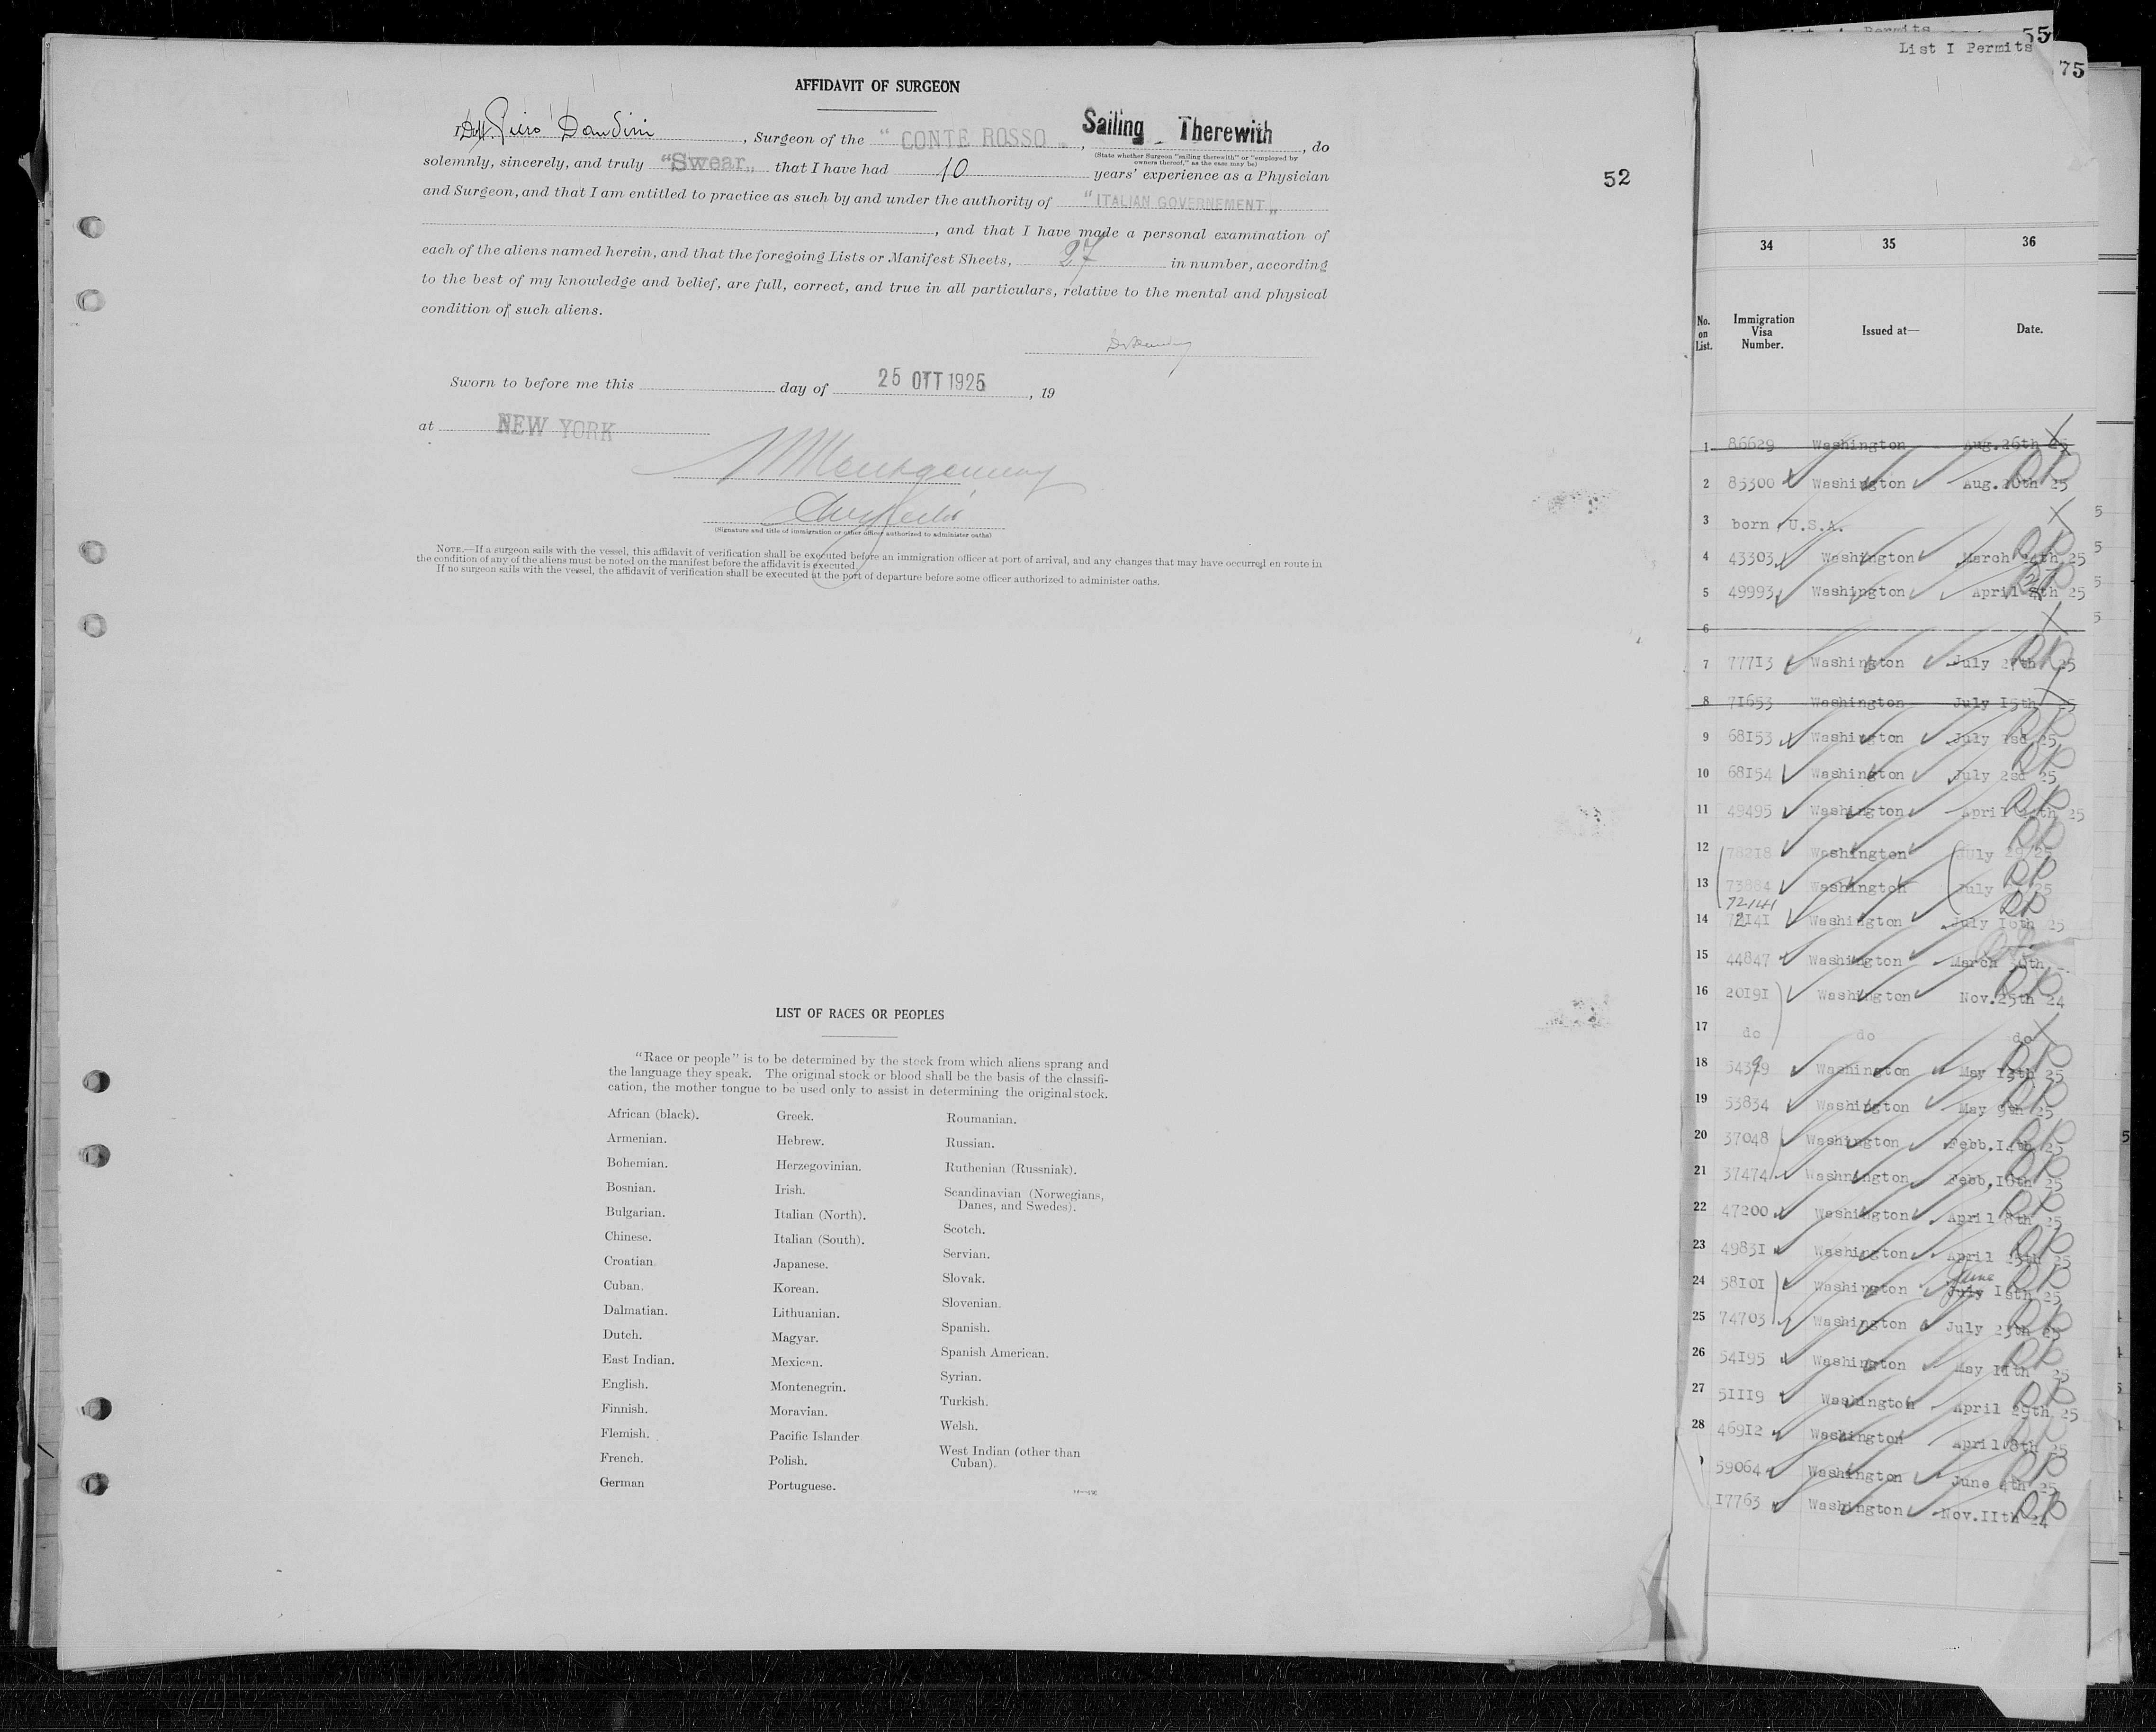 AFFIDAVIT OF SURGEON
I, Dott. Piero Dandini, Surgeon of the "CONTE ROSSO", Sailing Therewith, do
(State whether Surgeon "sailing therewith" or "employed by owners thereof," as the case may be)
solemnly, sincerely, and truly "Swear" that I have had 10 years' experience as a Physician
and Surgeon, and that I am entitled to practice as such by and under the authority of "ITALIAN GOVERNEMENT"
, and that I have made a personal examination of
each of the aliens named herein, and that the foregoing Lists or Manifest Sheets, 27 in number, according
to the best of my knowledge and belief, are full, correct, and true in all particulars, relative to the mental and physical
condition of such aliens.
Sworn to before me this day of 25 OTT 1925, 19
at NEW YORK
Montgomery
(Signature and title of immigration or other officer authorized to administer oaths)
NOTE.—If a surgeon sails with the vessel, this affidavit of verification shall be executed before an immigration officer at port of arrival, and any changes that may have occurred en route in
the condition of any of the aliens must be noted on the manifest before the affidavit is executed.
If no surgeon sails with the vessel, the affidavit of verification shall be executed at the port of departure before some officer authorized to administer oaths.
52
LIST OF RACES OR PEOPLES
"Race or people" is to be determined by the stock from which aliens sprang and
the language they speak. The original stock or blood shall be the basis of the classifi-
cation, the mother tongue to be used only to assist in determining the original stock.
African (black).
Armenian.
Bohemian.
Bosnian.
Bulgarian.
Chinese.
Croatian.
Cuban.
Dalmatian.
Dutch.
East Indian.
English.
Finnish.
Flemish.
French.
German
Greek.
Hebrew.
Herzegovinian.
Irish.
Italian (North).
Italian (South).
Japanese.
Korean.
Lithuanian.
Magyar.
Mexican.
Montenegrin.
Moravian.
Pacific Islander
Polish.
Portuguese.
Roumanian.
Russian.
Ruthenian (Russniak).
Scandinavian (Norwegians,
Danes, and Swedes).
Scotch.
Servian.
Slovak.
Slovenian.
Spanish.
Spanish American.
Syrian.
Turkish.
Welsh.
West Indian (other than
Cuban).
55
List I Permits
75
34 35 36
No. on List. Immigration Visa Number. Issued at— Date.
1 86629 Washington Aug.26th 25
2 85300 Washington Aug.20th 25
3 born U.S.A.
4 43303 Washington March 24th 25
5 49993 Washington April 25
6
7 77713 Washington July 27th 25
8 71653 Washington July 15th 25
9 68153 Washington July 25
10 68154 Washington July 2sd 25
11 49495 Washington April 25
12 78218 Washington July 29/25
13 73884 Washington July 25
72141
14 72141 Washington July 10th 25
15 44847 Washington March 30th
16 20191 Washington Nov.25th 24
17 do do do
18 Washington May 25
19 53834 Washington May 9th 25
20 37048 Washington Febb.14th 25
21 37474 Washington Febb.16th 25
22 47200 Washington April 8th 25
23 49831 Washington April 25
24 58101 Washington June July 25
25 74703 Washington July 25
26 54195 Washington May 11th 25
27 51119 Washington April 29th 25
28 46912 Washington April 8th 25
59064 Washington June 4th 25
17763 Washington Nov.11th 24